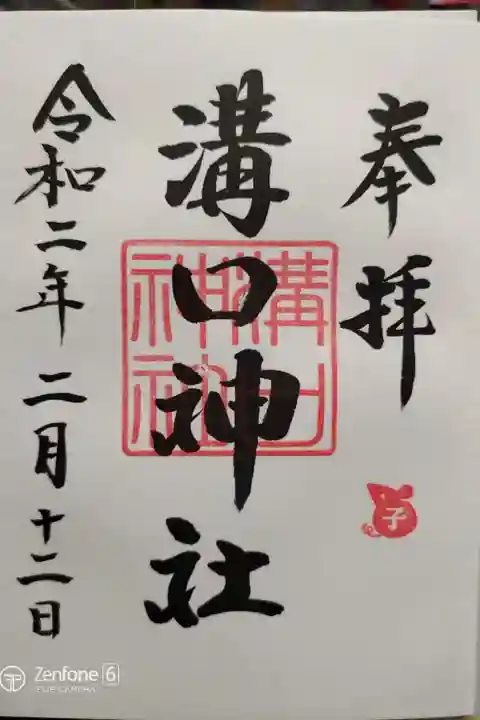 奉拝
溝口神社
令和二年二月十二日
子
Zenfone 6